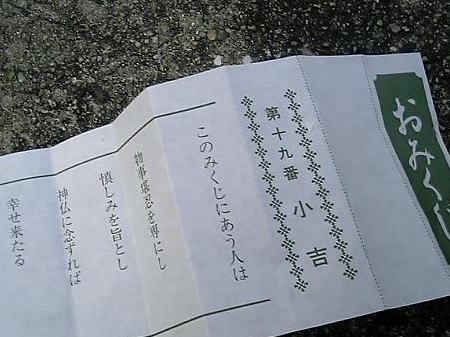 おみくじ
第十九番 小吉
このみくじにあう人は
物事堪忍を専にし
慎しみを旨とし
神仏に念ずれば
幸せ来たる